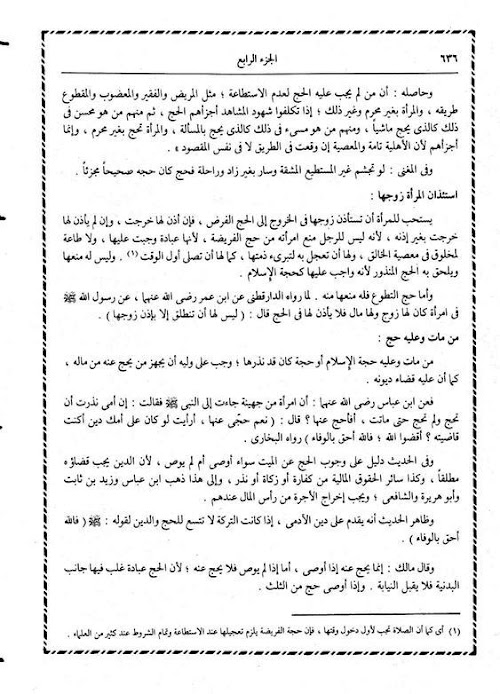 ٦٣٦
الجزء الرابع
وحاصله : أن من لم يجب عليه الحج لعدم الاستطاعة ؛ مثل المريض والفقير والمعضوب والمقطوع
طريقه ، والمرأة بغير محرم وغير ذلك ؛ إذا تكلفوا شهود المشاهد أجزأهم الحج ، ثم منهم من هو محسن فى
ذلك كالذى يحج ماشياً ، ومنهم من هو مسىء فى ذلك كالذى يحج بالمسألة ، والمرأة تحج بغير محرم ، وإنما
أجزأهم لأن الأهلية تامة والمعصية إن وقعت فى الطريق لا فى نفس المقصود » .
وفى المغنى : لو تجشم غير المستطيع المشقة وسار بغير زاد وراحلة فحج كان حجه صحيحاً مجزئاً .
استئذان المرأة زوجها :
يستحب للمرأة أن تستأذن زوجها فى الخروج إلى الحج الفرض ، فإن أذن لها خرجت ، وإن لم يأذن لها
خرجت بغير إذنه ، لأنه ليس للرجل منع امرأته من حج الفريضة ، لأنها عبادة وجبت عليها ، ولا طاعة
لمخلوق فى معصية الخالق ، ولها أن تعجل به لتبرىء ذمتها ، كما لها أن تصلى أول الوقت (١) . وليس له منعها
ويلحق به الحج المنذور لأنه واجب عليها كحجة الإسلام .
وأما حج التطوع فله منعها منه . لما رواه الدارقطنى عن ابن عمر رضى الله عنهما ، عن رسول الله ﷺ
فى امرأة كان لها زوج ولها مال فلا يأذن لها فى الحج قال : ( ليس لها أن تنطلق إلا بإذن زوجها ) .
من مات وعليه حج :
من مات وعليه حجة الإسلام أو حجة كان قد نذرها ؛ وجب على وليه أن يجهز من يحج عنه من ماله ،
كما أن عليه قضاء ديونه .
فعن ابن عباس رضى الله عنهما : أن امرأة من جهينة جاءت إلى النبى ﷺ فقالت : إن أمى نذرت أن
تحج ولم تحج حتى ماتت ، أفأحج عنها ؟ قال : ( نعم حجّى عنها ، أرأيت لو كان على أمك دين أكنت
قاضيته ؟ أقضوا الله ؛ فالله أحق بالوفاء ) رواه البخارى .
وفى الحديث دليل على وجوب الحج عن الميت سواء أوصى أم لم يوص ، لأن الدين يجب قضاؤه
مطلقاً ، وكذا سائر الحقوق المالية من كفارة أو زكاة أو نذر ، وإلى هذا ذهب ابن عباس وزيد بن ثابت
وأبو هريرة والشافعى ؛ ويجب إخراج الأجرة من رأس المال عندهم .
وظاهر الحديث أنه يقدم على دين الآدمى ، إذا كانت التركة لا تتسع للحج والدين لقوله : ﷺ ( فالله
أحق بالوفاء ) .
وقال مالك : إنما يحج عنه إذا أوصى ، أما إذا لم يوص فلا يحج عنه ؛ لأن الحج عبادة غلب فيها جانب
البدنية فلا يقبل النيابة . وإذا أوصى حج من الثلث .
(١) أى كما أن الصلاة تجب لأول دخول وقتها ، فإن حجة الفريضة يلزم تعجيلها عند الاستطاعة وتمام الشروط عند كثير من العلماء .